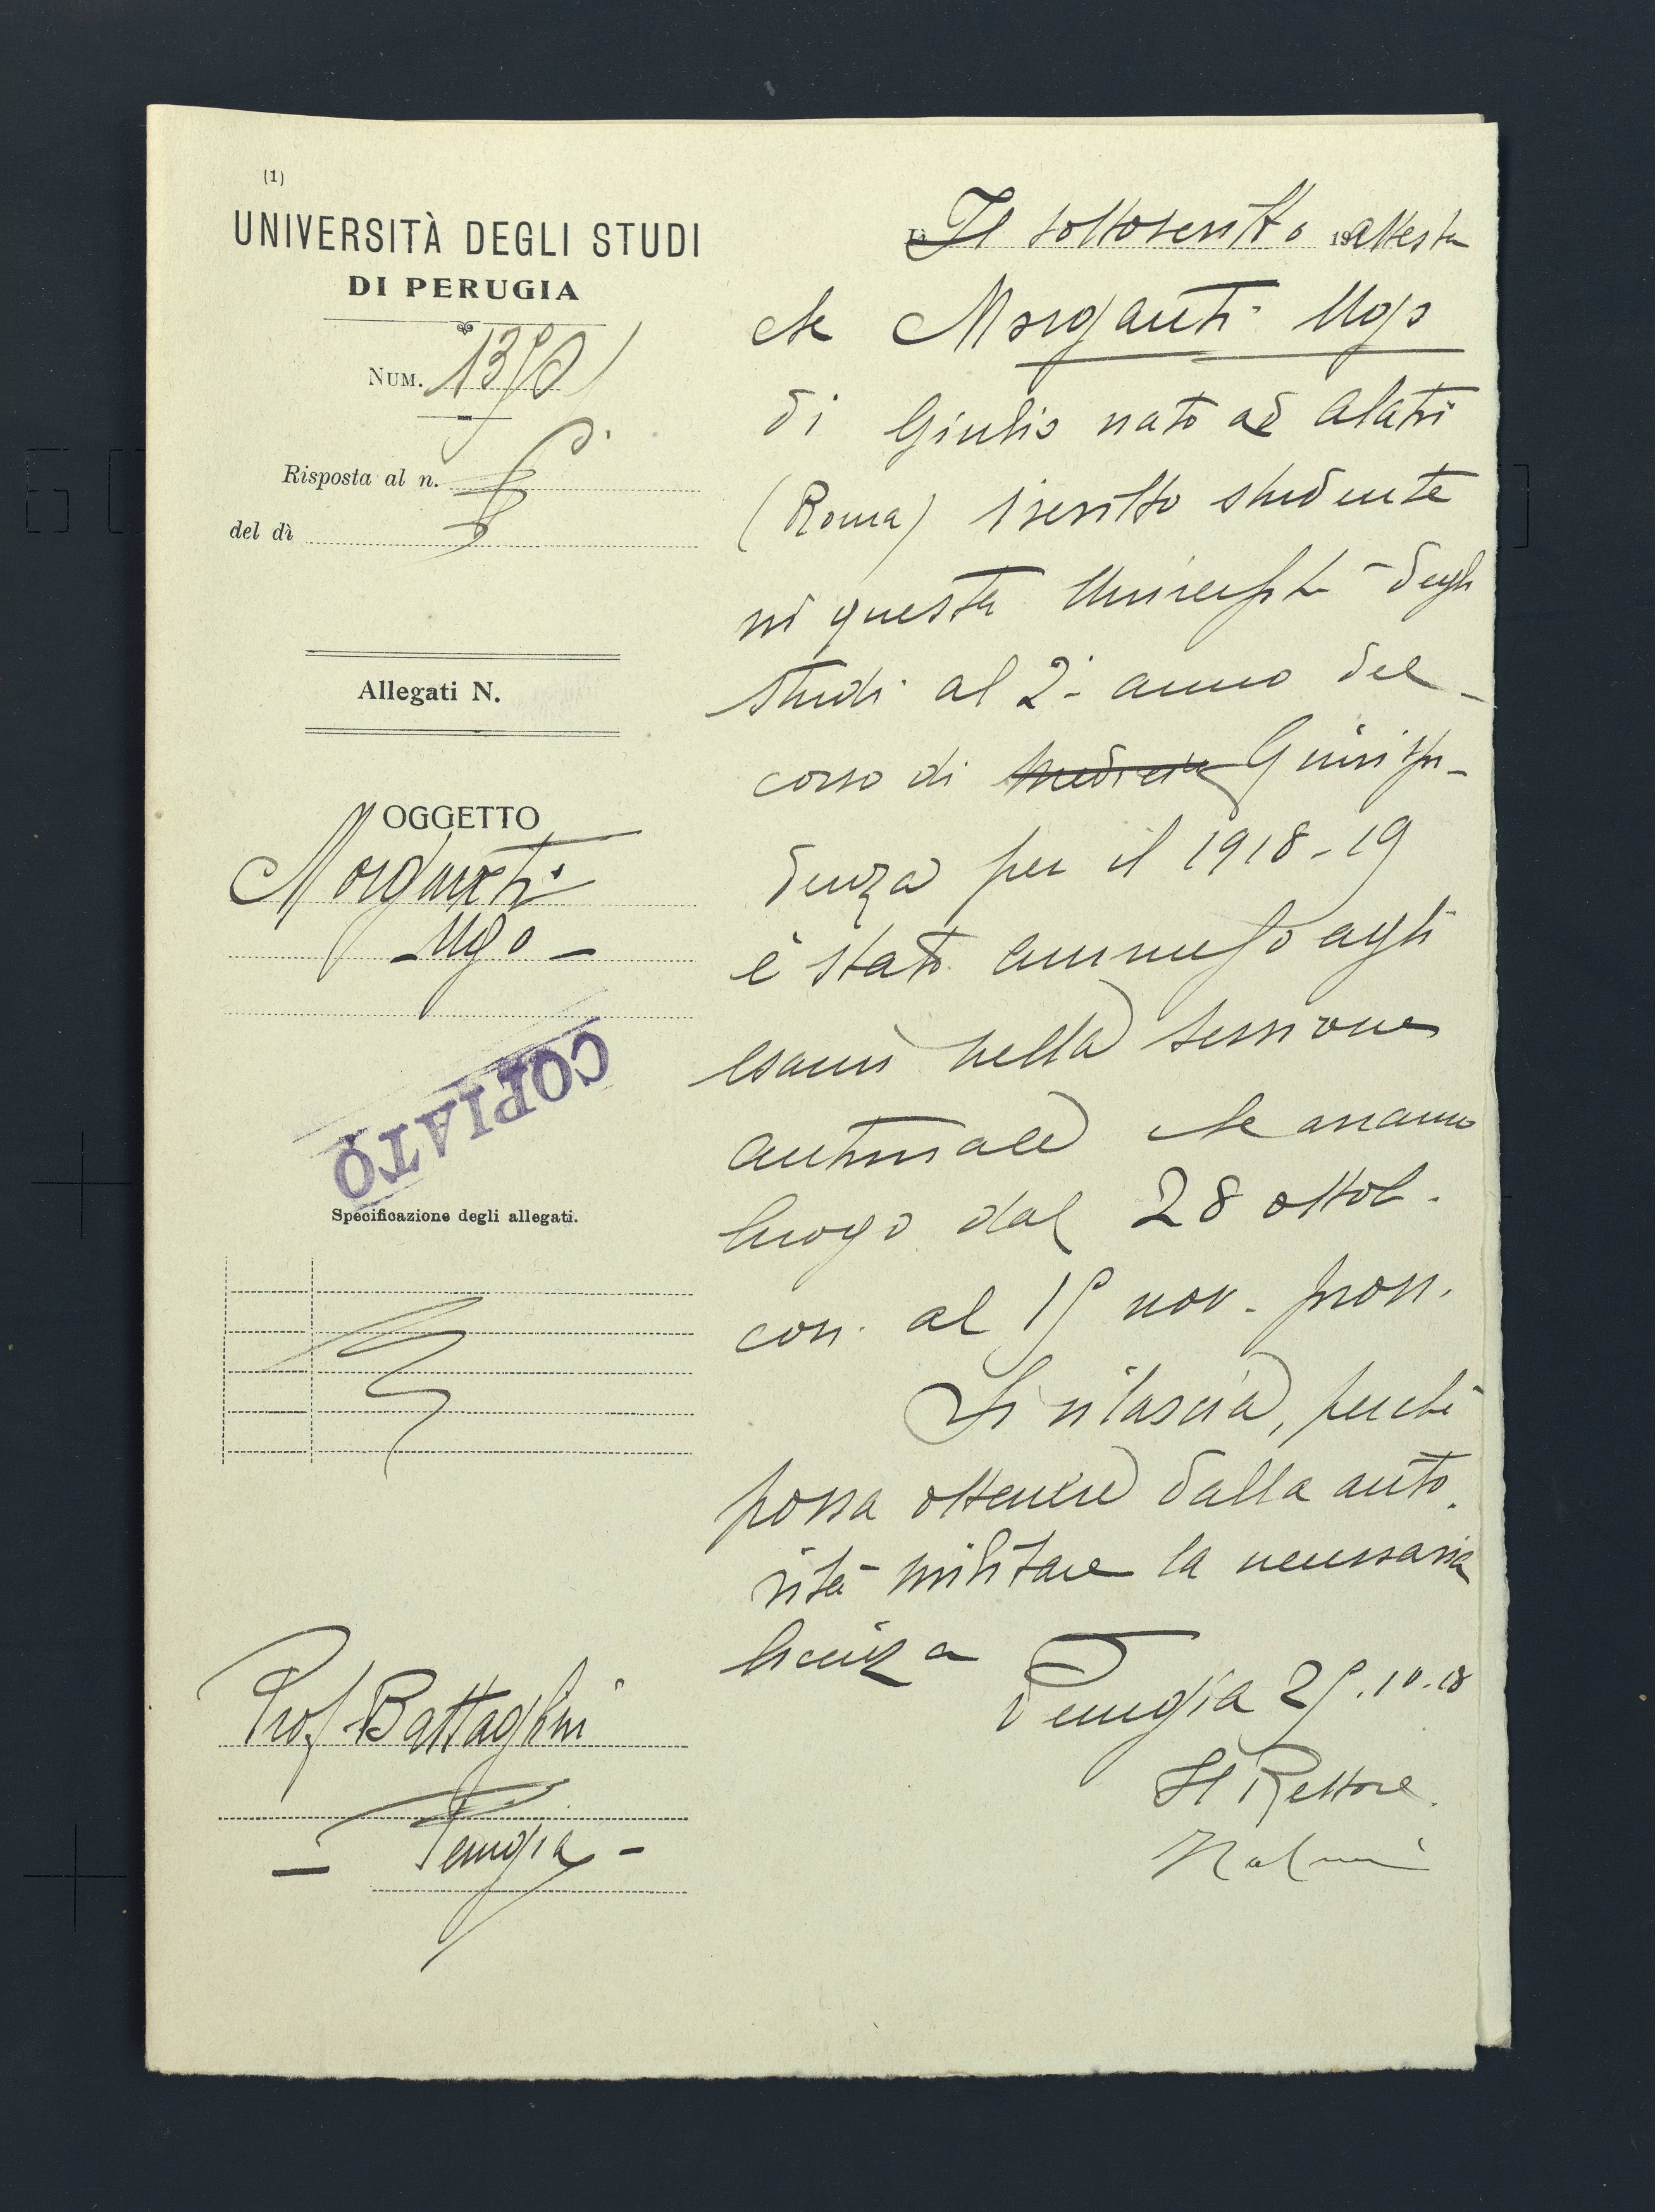 (1)
UNIVERSITÀ DEGLI STUDI
DI PERUGIA
NUM.
Risposta al n.
del dì
Allegati N.
OGGETTO
Morganti
Ugo
COPIATO
Specificazione degli allegati.
Prof. Battaglini
Perugia
Il sottoscritto attesta
che Morganti Ugo
di Giulio nato ad Alatri
(Roma) iscritto studente
in questa Università degli
studi al 2º anno del
corso di medicina Giurispru-
denza per il 1918-19
è stato ammesso agli
esami nella sessione
autunnale che avranno
luogo dal 28 ottob.
corr. al 15 nov. pross.
Si rilascia, perché
possa ottenere dalla auto
rità militare la necessaria
licenza
Perugia 25.10.18
Il Rettore